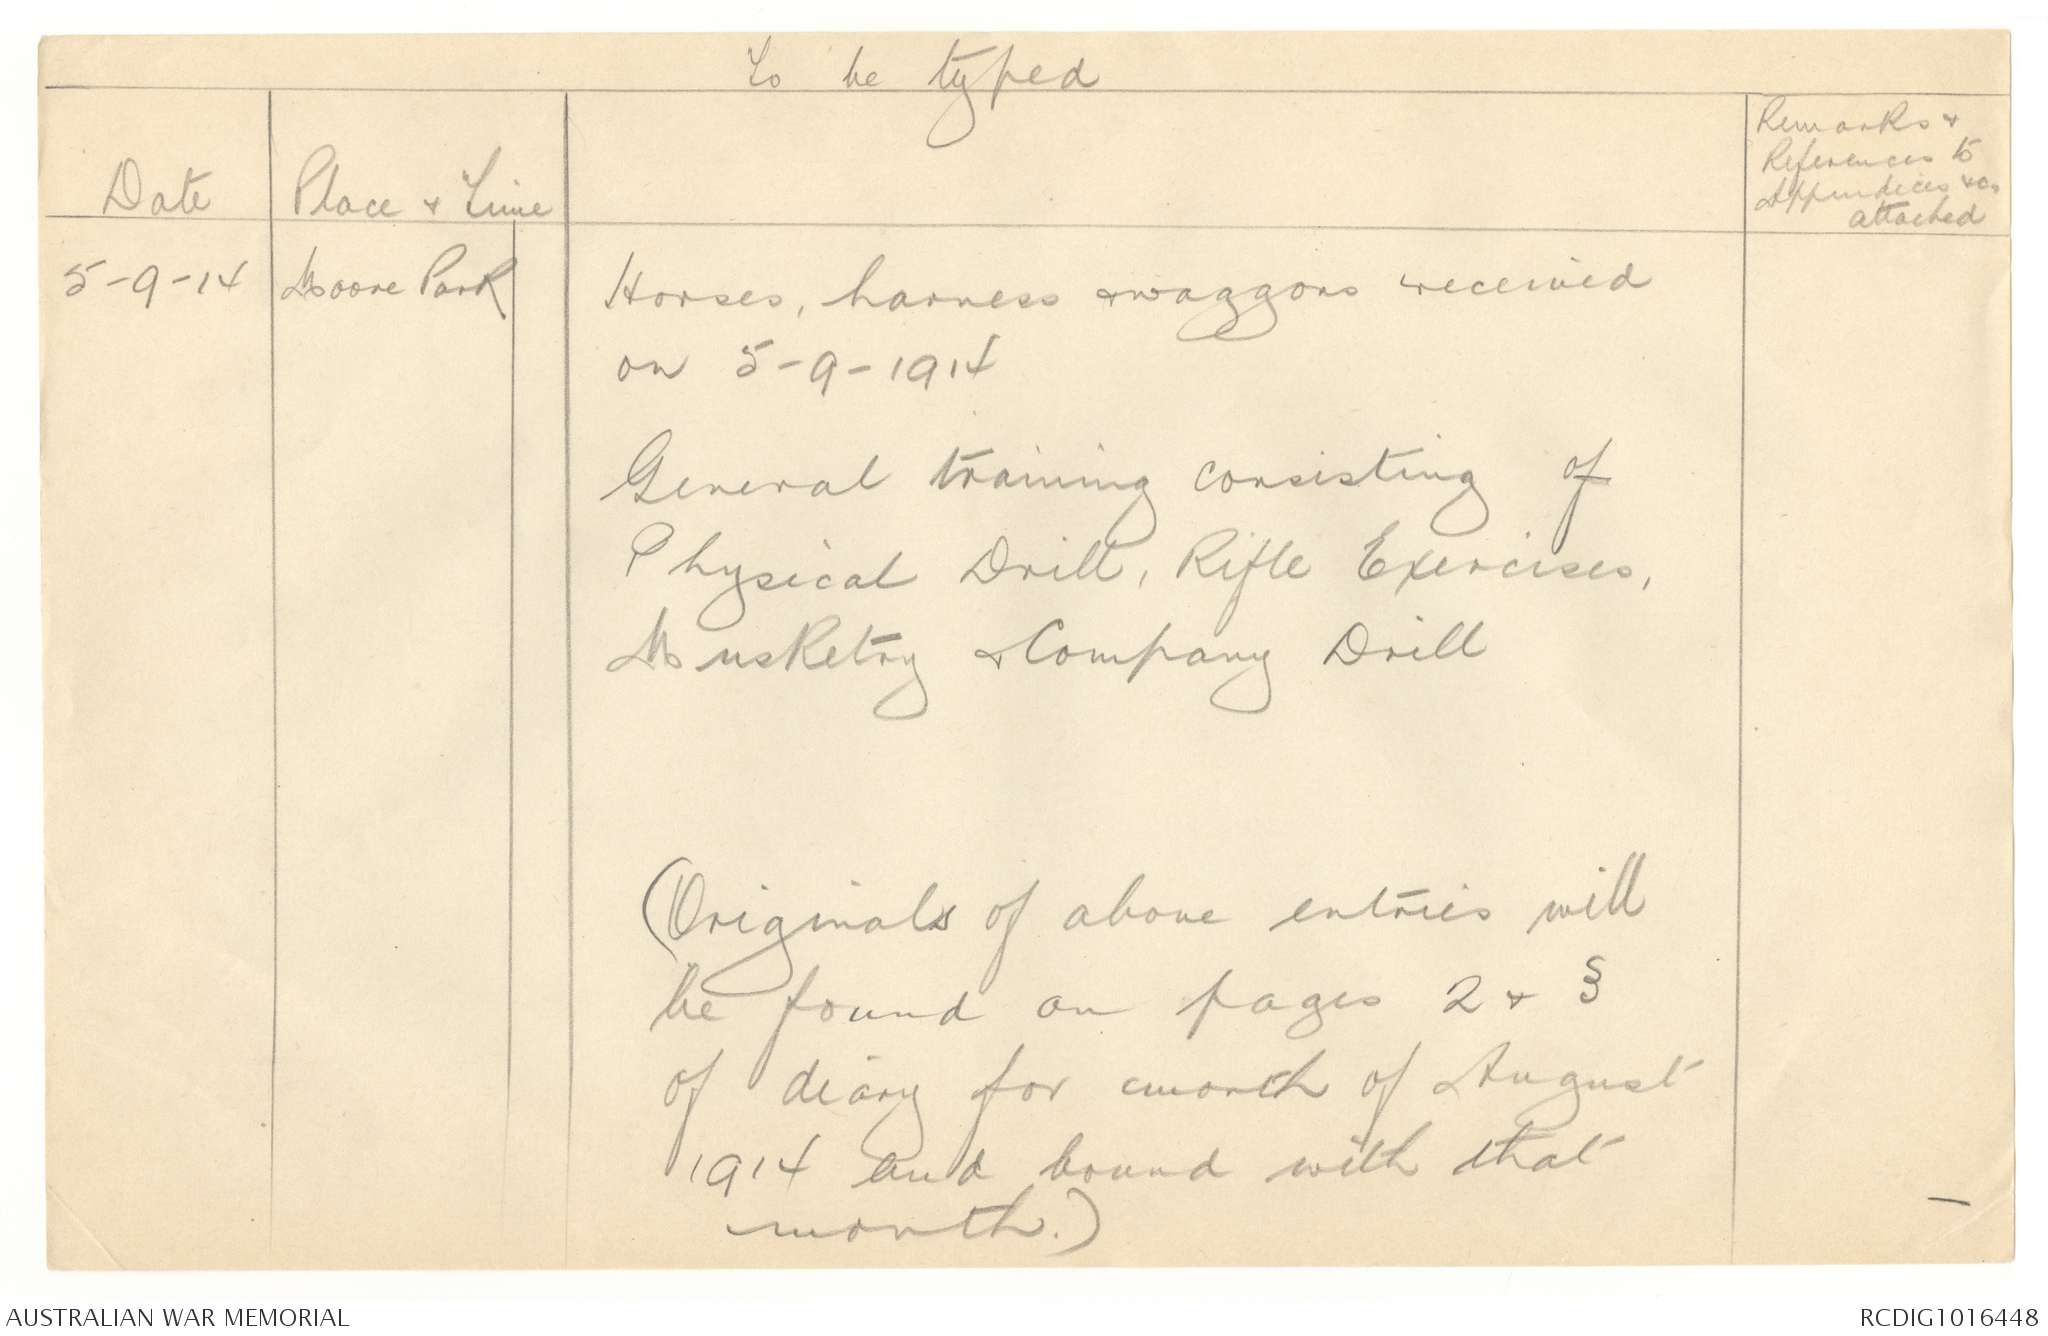 To be typed
Date
Place & Time
Remarks &
References to
Appendices &c
attached
5-9-14
Moore Park
Horses, harness & waggons received
on 5-9-1914
General training consisting of
Physical Drill, Rifle Exercises,
Musketry & Company Drill
(Originals of above entries will
be found on pages 2 & 3
of diary for month of August
1914 and bound with that
month.)
AUSTRALIAN WAR MEMORIAL
RCDIG1016448